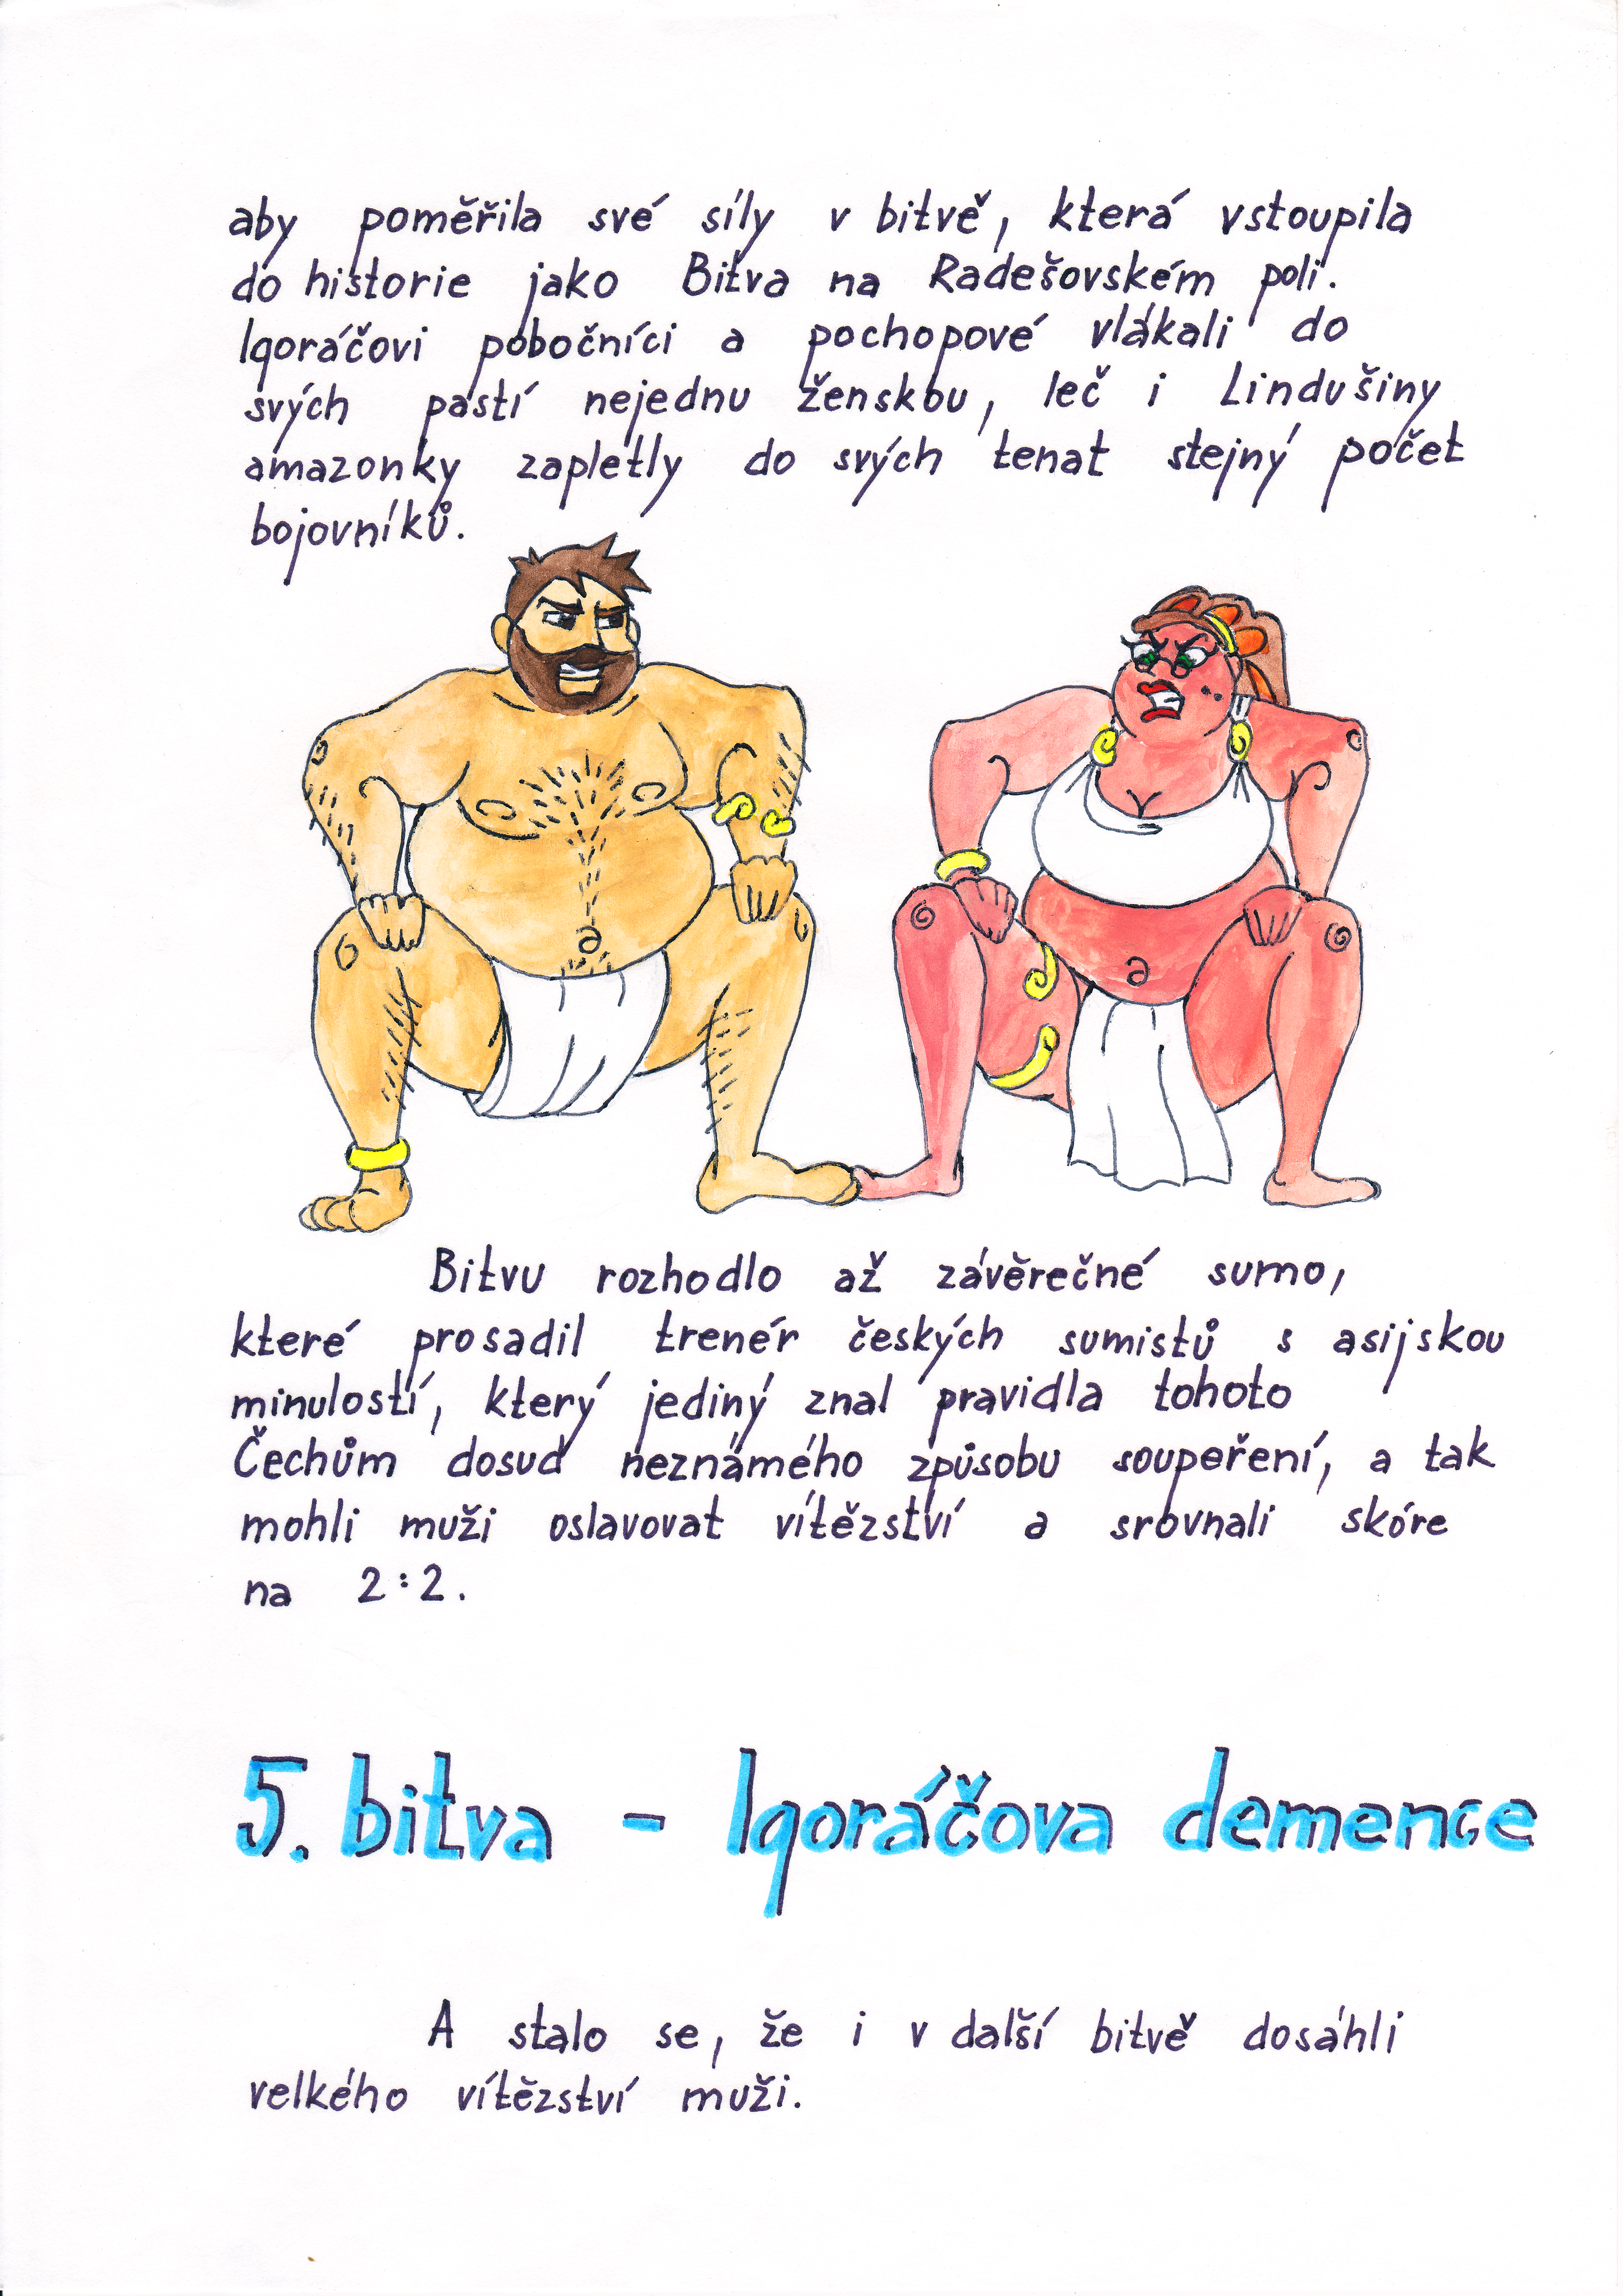 aby poměřila své síly v bitvě, která vstoupila
do historie jako Bitva na Radešovském poli.
Igoráčovi pobočníci a pochopové vlákali do
svých pastí nejednu ženskou, leč i Lindušiny
amazonky zapletly do svých tenat stejný počet
bojovníků.
Bitvu rozhodlo až závěrečné sumo,
které prosadil trenér českých sumistů s asijskou
minulostí, který jediný znal pravidla tohoto
Čechům dosud neznámého způsobu soupeření, a tak
mohli muži oslavovat vítězství a srovnali skóre
na 2:2.
5. bitva - Igoráčova demence
A stalo se, že i v další bitvě dosáhli
velkého vítězství muži.